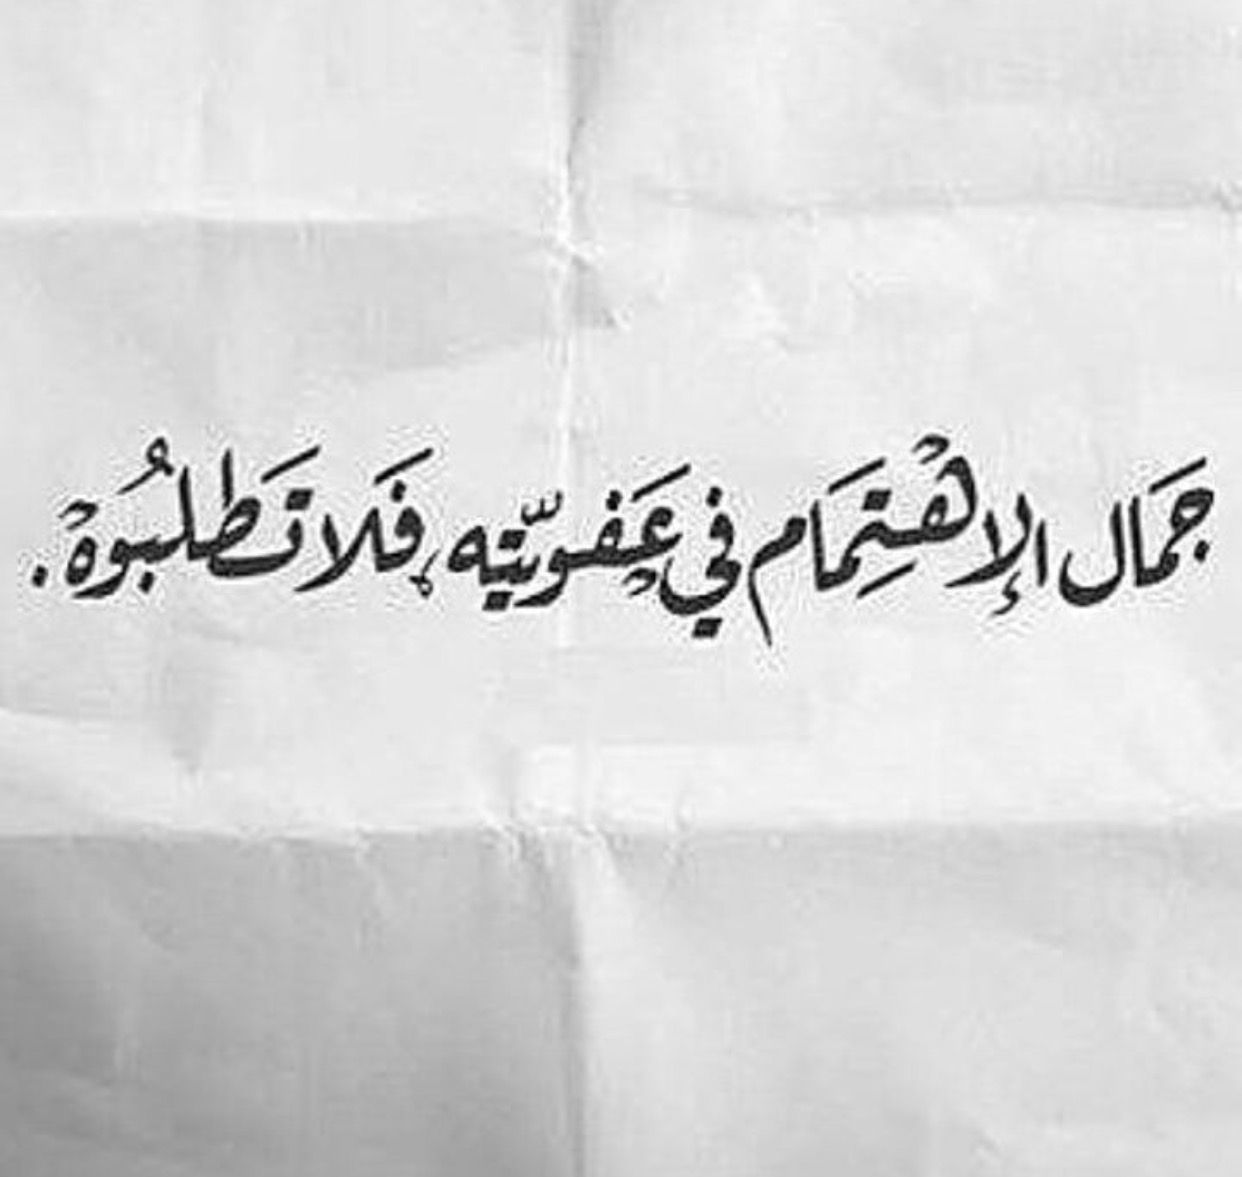 جَمَال الإهْتِمَام في عَفويّته فَلا تَطلبُوهْ.